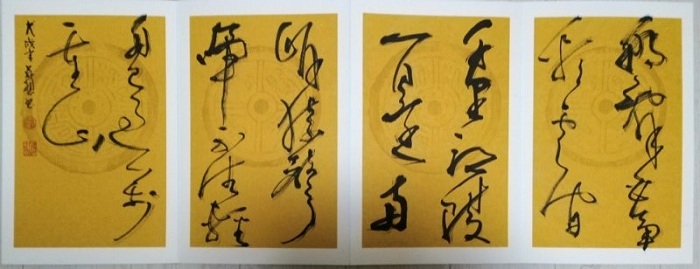 朝辞白帝
彩云间
千里江陵
一日还两
岸猿声
啼不住轻
舟已过万
重山
戊戌年